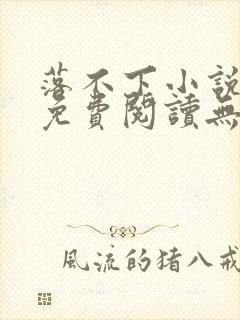 落不下小說
免費閱讀無
風流的猪八戒